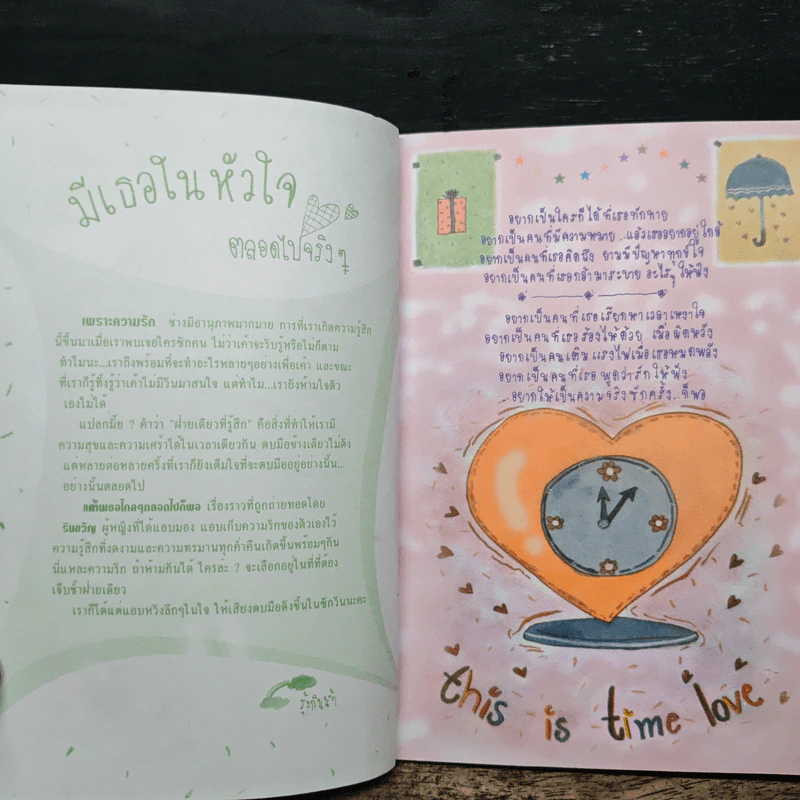 มีเธอในหัวใจ
ตลอดไปจริงๆ
เพราะความรัก ช่างมีอานุภาพมากมาย การที่เราเกิดความรู้สึก
นี้ขึ้นมาเมื่อเราพบเจอใครซักคน ไม่ว่าเค้าจะรับรู้หรือไม่ก็ตาม
ทำไมนะ...เราถึงพร้อมที่จะทำอะไรหลายๆอย่างเพื่อเค้า และขณะ
ที่เราก็รู้ทั้งรู้ว่าเค้าไม่มีวันมาสนใจ แต่ทำไม...เรายังห้ามใจตัว
เองไม่ได้
แปลกมั้ย ? คำว่า "ฝ่ายเดียวที่รู้สึก" คือสิ่งที่ทำให้เรามี
ความสุขและความเศร้าได้ในเวลาเดียวกัน ตบมือข้างเดียวไม่ดัง
แต่หลายต่อหลายครั้งที่เราก็ยังเต็มใจที่จะตบมืออยู่อย่างนั้น...
อย่างนั้นตลอดไป
แค่พอใจไกลๆตลอดไปก็พอ เรื่องราวที่ถูกถ่ายทอดโดย
รินขวัญ ผู้หญิงที่ได้แอบมอง แอบเก็บความรักของตัวเองไว้
ความรู้สึกที่งดงามและความทรมานทุกค่ำคืนเกิดขึ้นพร้อมๆกัน
นี่แหละความรัก ถ้าห้ามกันได้ ใครล่ะ ? จะเลือกอยู่ในที่ที่ต้อง
เจ็บช้ำฝ่ายเดียว
เราก็ได้แต่แอบหวังลึกๆในใจ ให้เสียงตบมือดังขึ้นในซักวันนะคะ
รุ้งกินน้ำ
อยากเป็นใครก็ได้ที่เธอทักทาย
อยากเป็นคนที่มีความหมาย..แล้วเธออยากอยู่ใกล้
อยากเป็นคนที่เธอคิดถึง ยามมีปัญหาทุกข์ใจ
อยากเป็นคนที่เธอกล้ามาระบาย อะไรๆ ให้ฟัง
อยากเป็นคนที่เธอเรียกหาเวลาเหงาใจ
อยากเป็นคนที่เธอร้องไห้ด้วย เมื่อผิดหวัง
อยากเป็นคนเติมแรงไฟเมื่อเธอหมดพลัง
อยากเป็นคนที่เธอ พูดว่ารักให้ฟัง
...อยากให้เป็นความจริงซักครั้ง..ก็พอ
this is time love